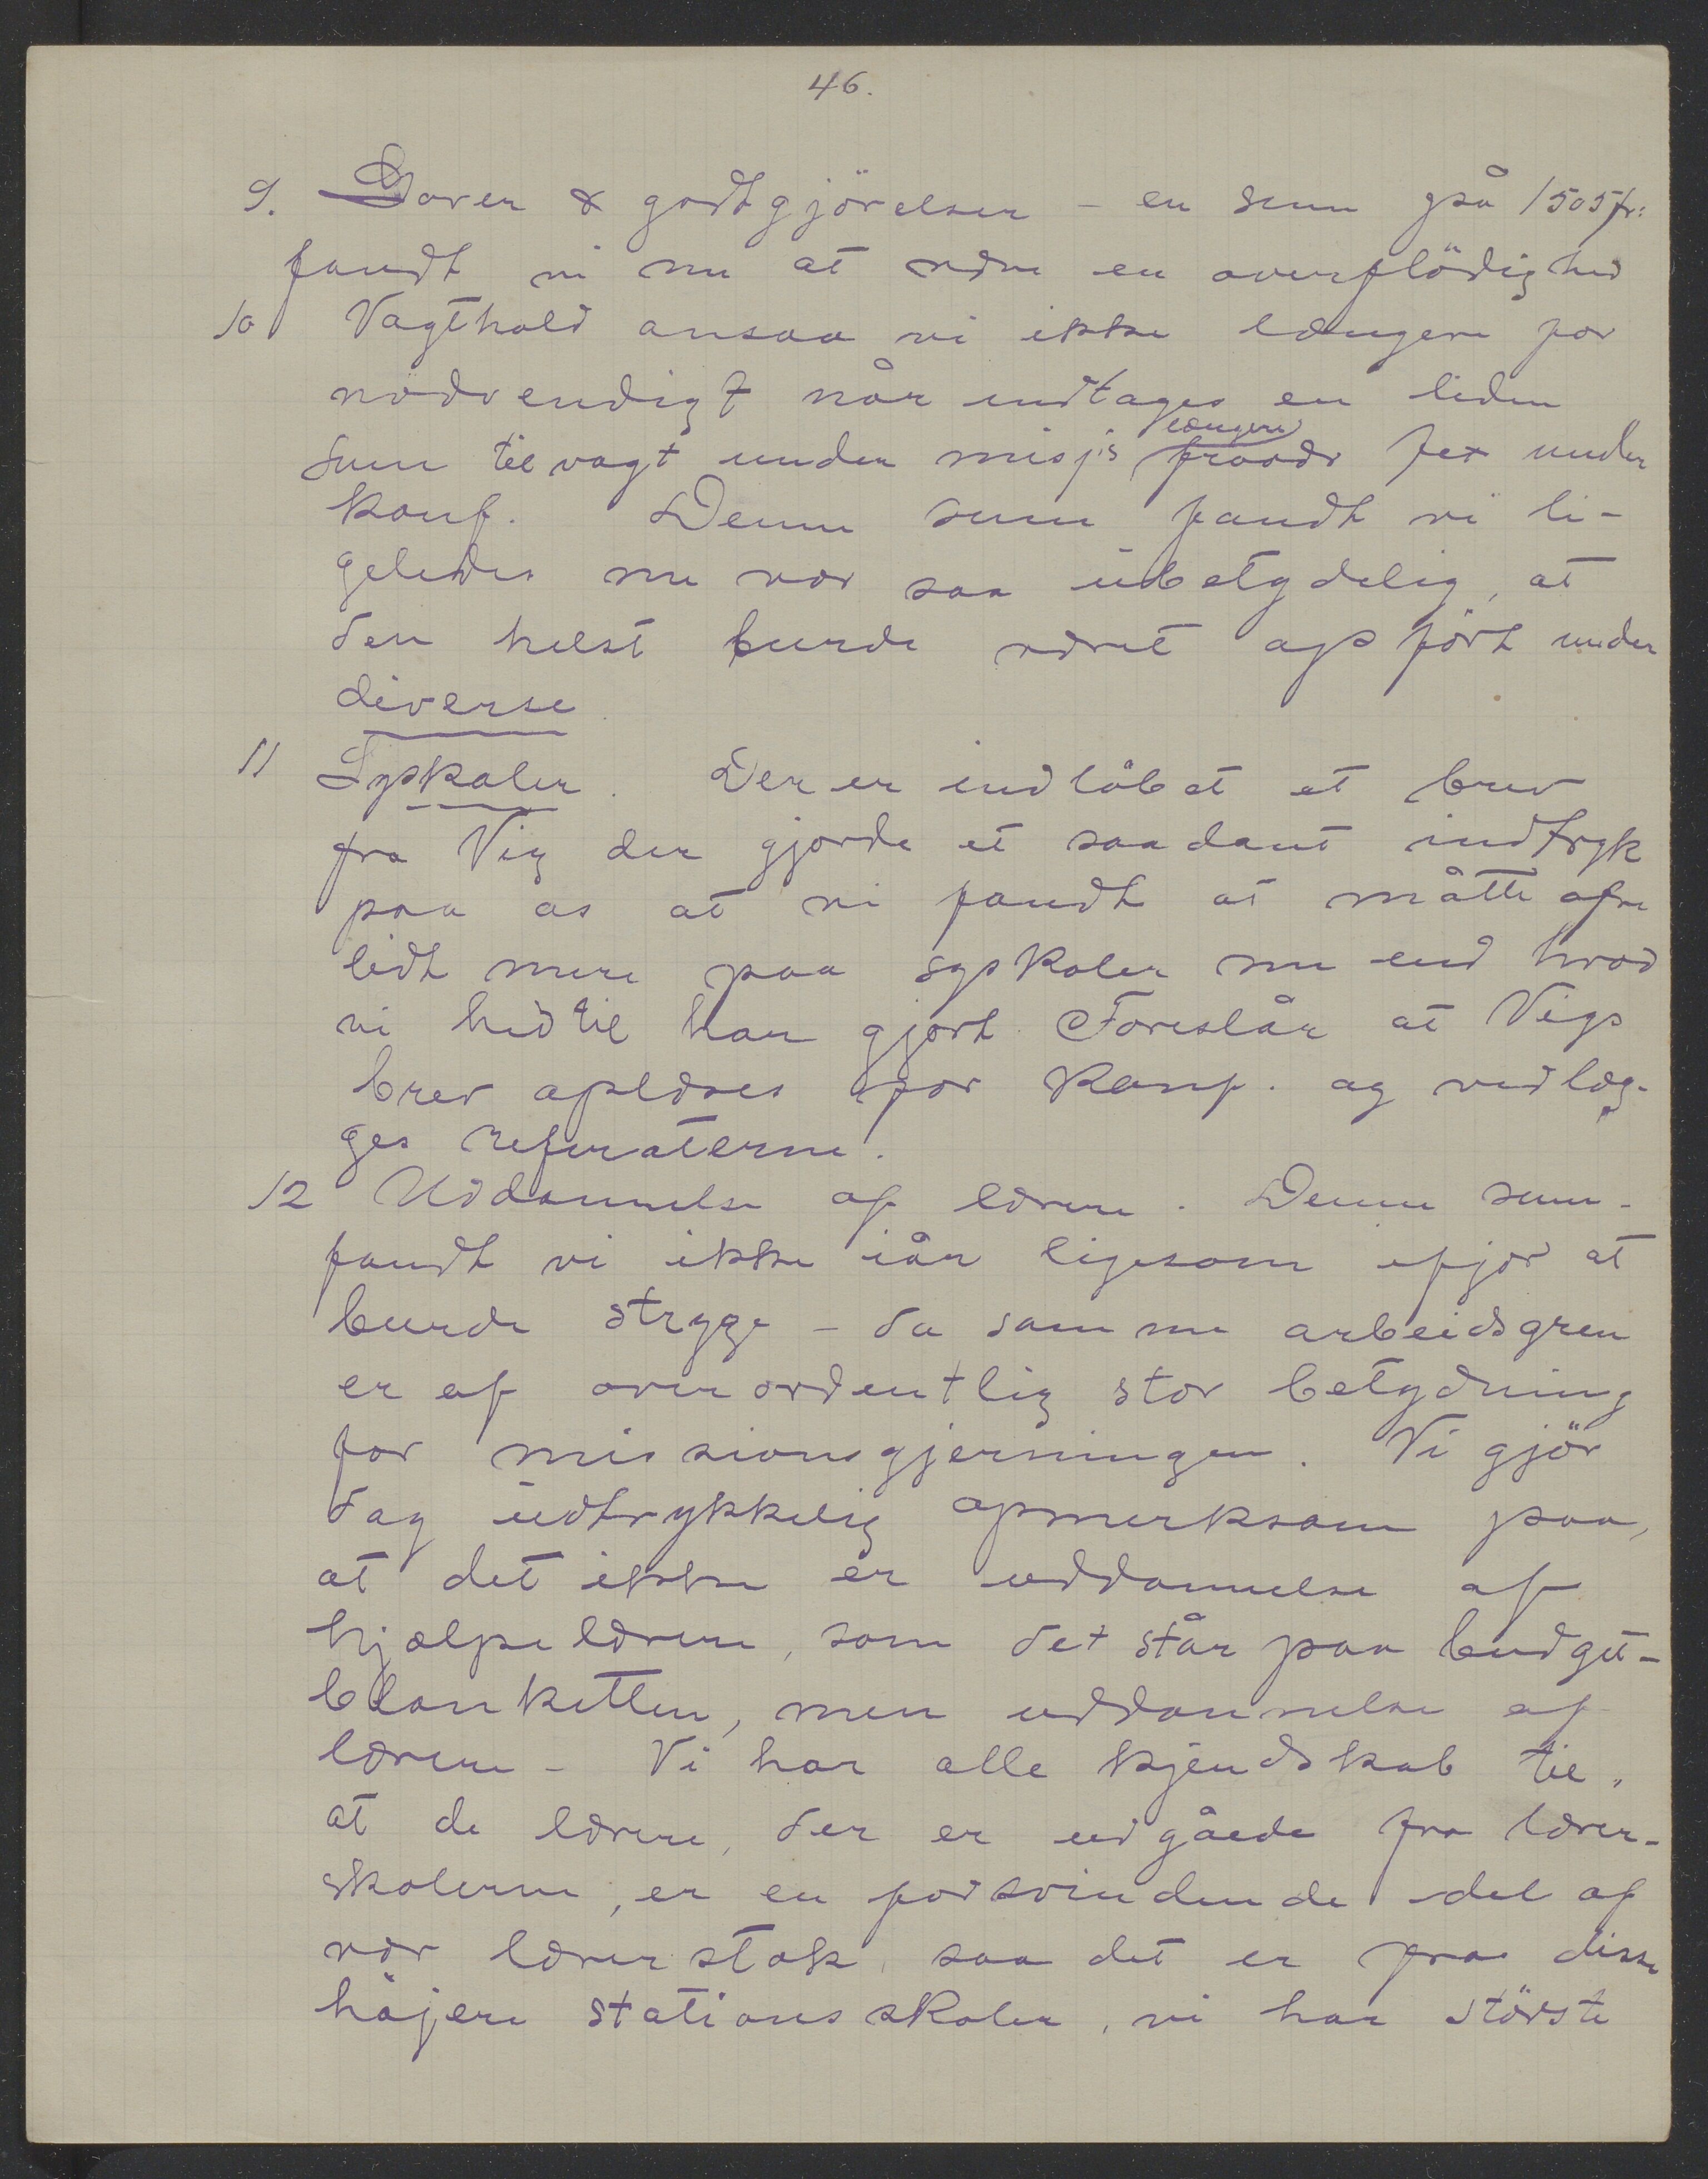 46.
9. Gaver & godtgjörelser - en sum på 1505 fr:
fandt vi nu at være en overflödighed
10 Vagthold ansaa vi ikke længere for
nödvendigt når undtages en liden
sum til vagt under misj's længere fravær fex under
konf. Denne sum fandt vi li-
geledes nu var saa ubetydelig, at
den helst burde været opfört under
diverse
11 Syskoler. Der er indlöbet et brev
fra Vig der gjorde et saadant indtryk
paa os at vi fandt at måtte ofre
lidt mere paa syskoler nu end hvad
vi hidtil har gjort. Foreslår at Vigs
brev oplæses for Konf. og vedlæg-
ges referaterne.
12 Uddannelse af lærere. Denne sum
fandt vi ikke iår ligesom ifjor at
burde stryge - da samme arbeidsgren
er af overordentlig stor betydning
for missionsgjerningen. Vi gjör
dog udtrykkelig opmerksom paa,
at det ikke er uddannelse af
hjælpelærere, som det står paa budget-
blanketten, men uddannelse af
lærere - Vi har alle kjendskab til,
at de lærere, der er udgåede fra lærer-
skolerne, er en forsvindende del af
vor lærerstok, saa det er fra disse
höjere stationsskoler, vi har störste